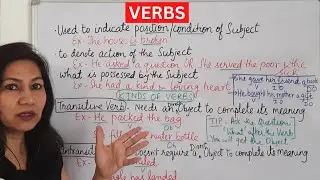 VERBS
• Used to indicate position/condition of Subject
Ex - The house is broken
to denote action of the Subject
Ex - He asked a question OR She served the poor & the sick
what is possessed by the Subject
Ex - She had a kind & loving heart
KINDS OF VERBS
She gave her friend a book
IO DO
He bought his mother a gift
IO DO
Transitive Verb - Needs an Direct Object to complete its meaning
Ex - He packed the bag
Ob
TIP: Ask the Question
"What" after the Verb
You will get the Object
water bottle
Ob Direct
Intransiti doesn't require a Object to complete its meaning
Ex -
has landed